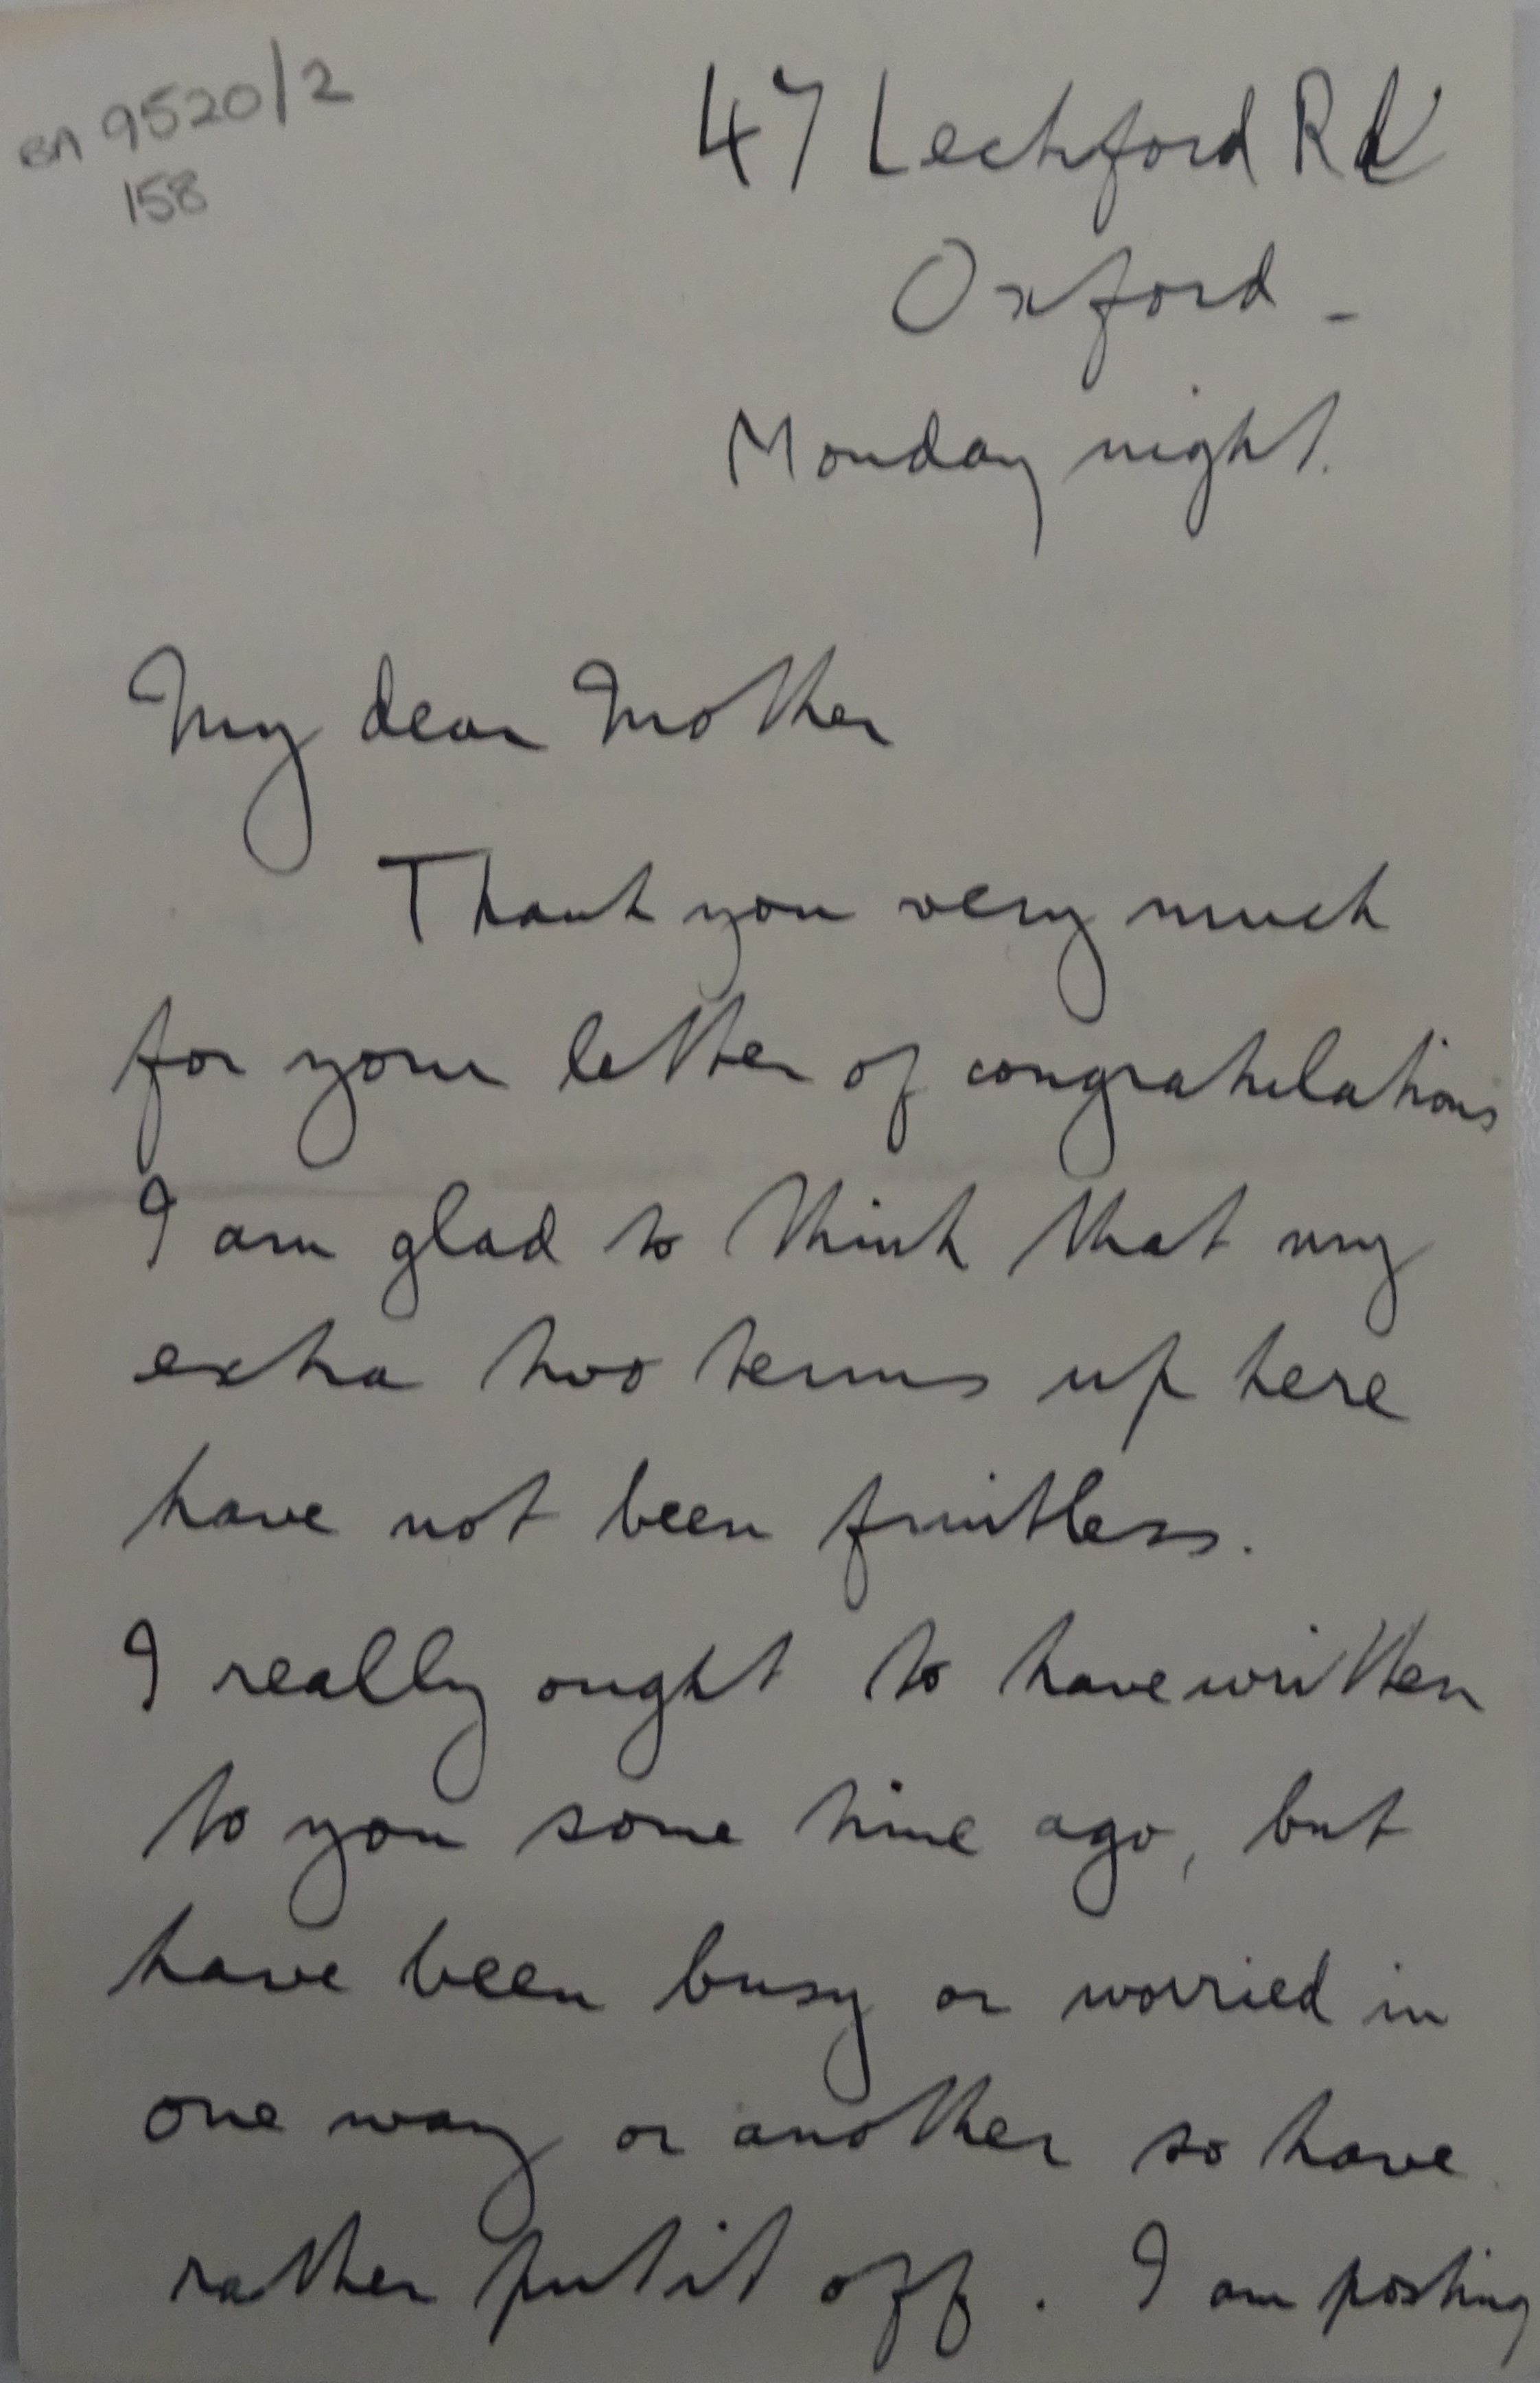 BA 9520/2
158
47 Lechford Rd
Oxford -
Monday night.
My dear Mother
Thank you very much
for your letter of congratulations
I am glad to think that my
extra two terms up here
have not been fruitless.
I really ought to have written
to you some time ago, but
have been busy or worried in
one way or another so have
rather put it off. I am posting